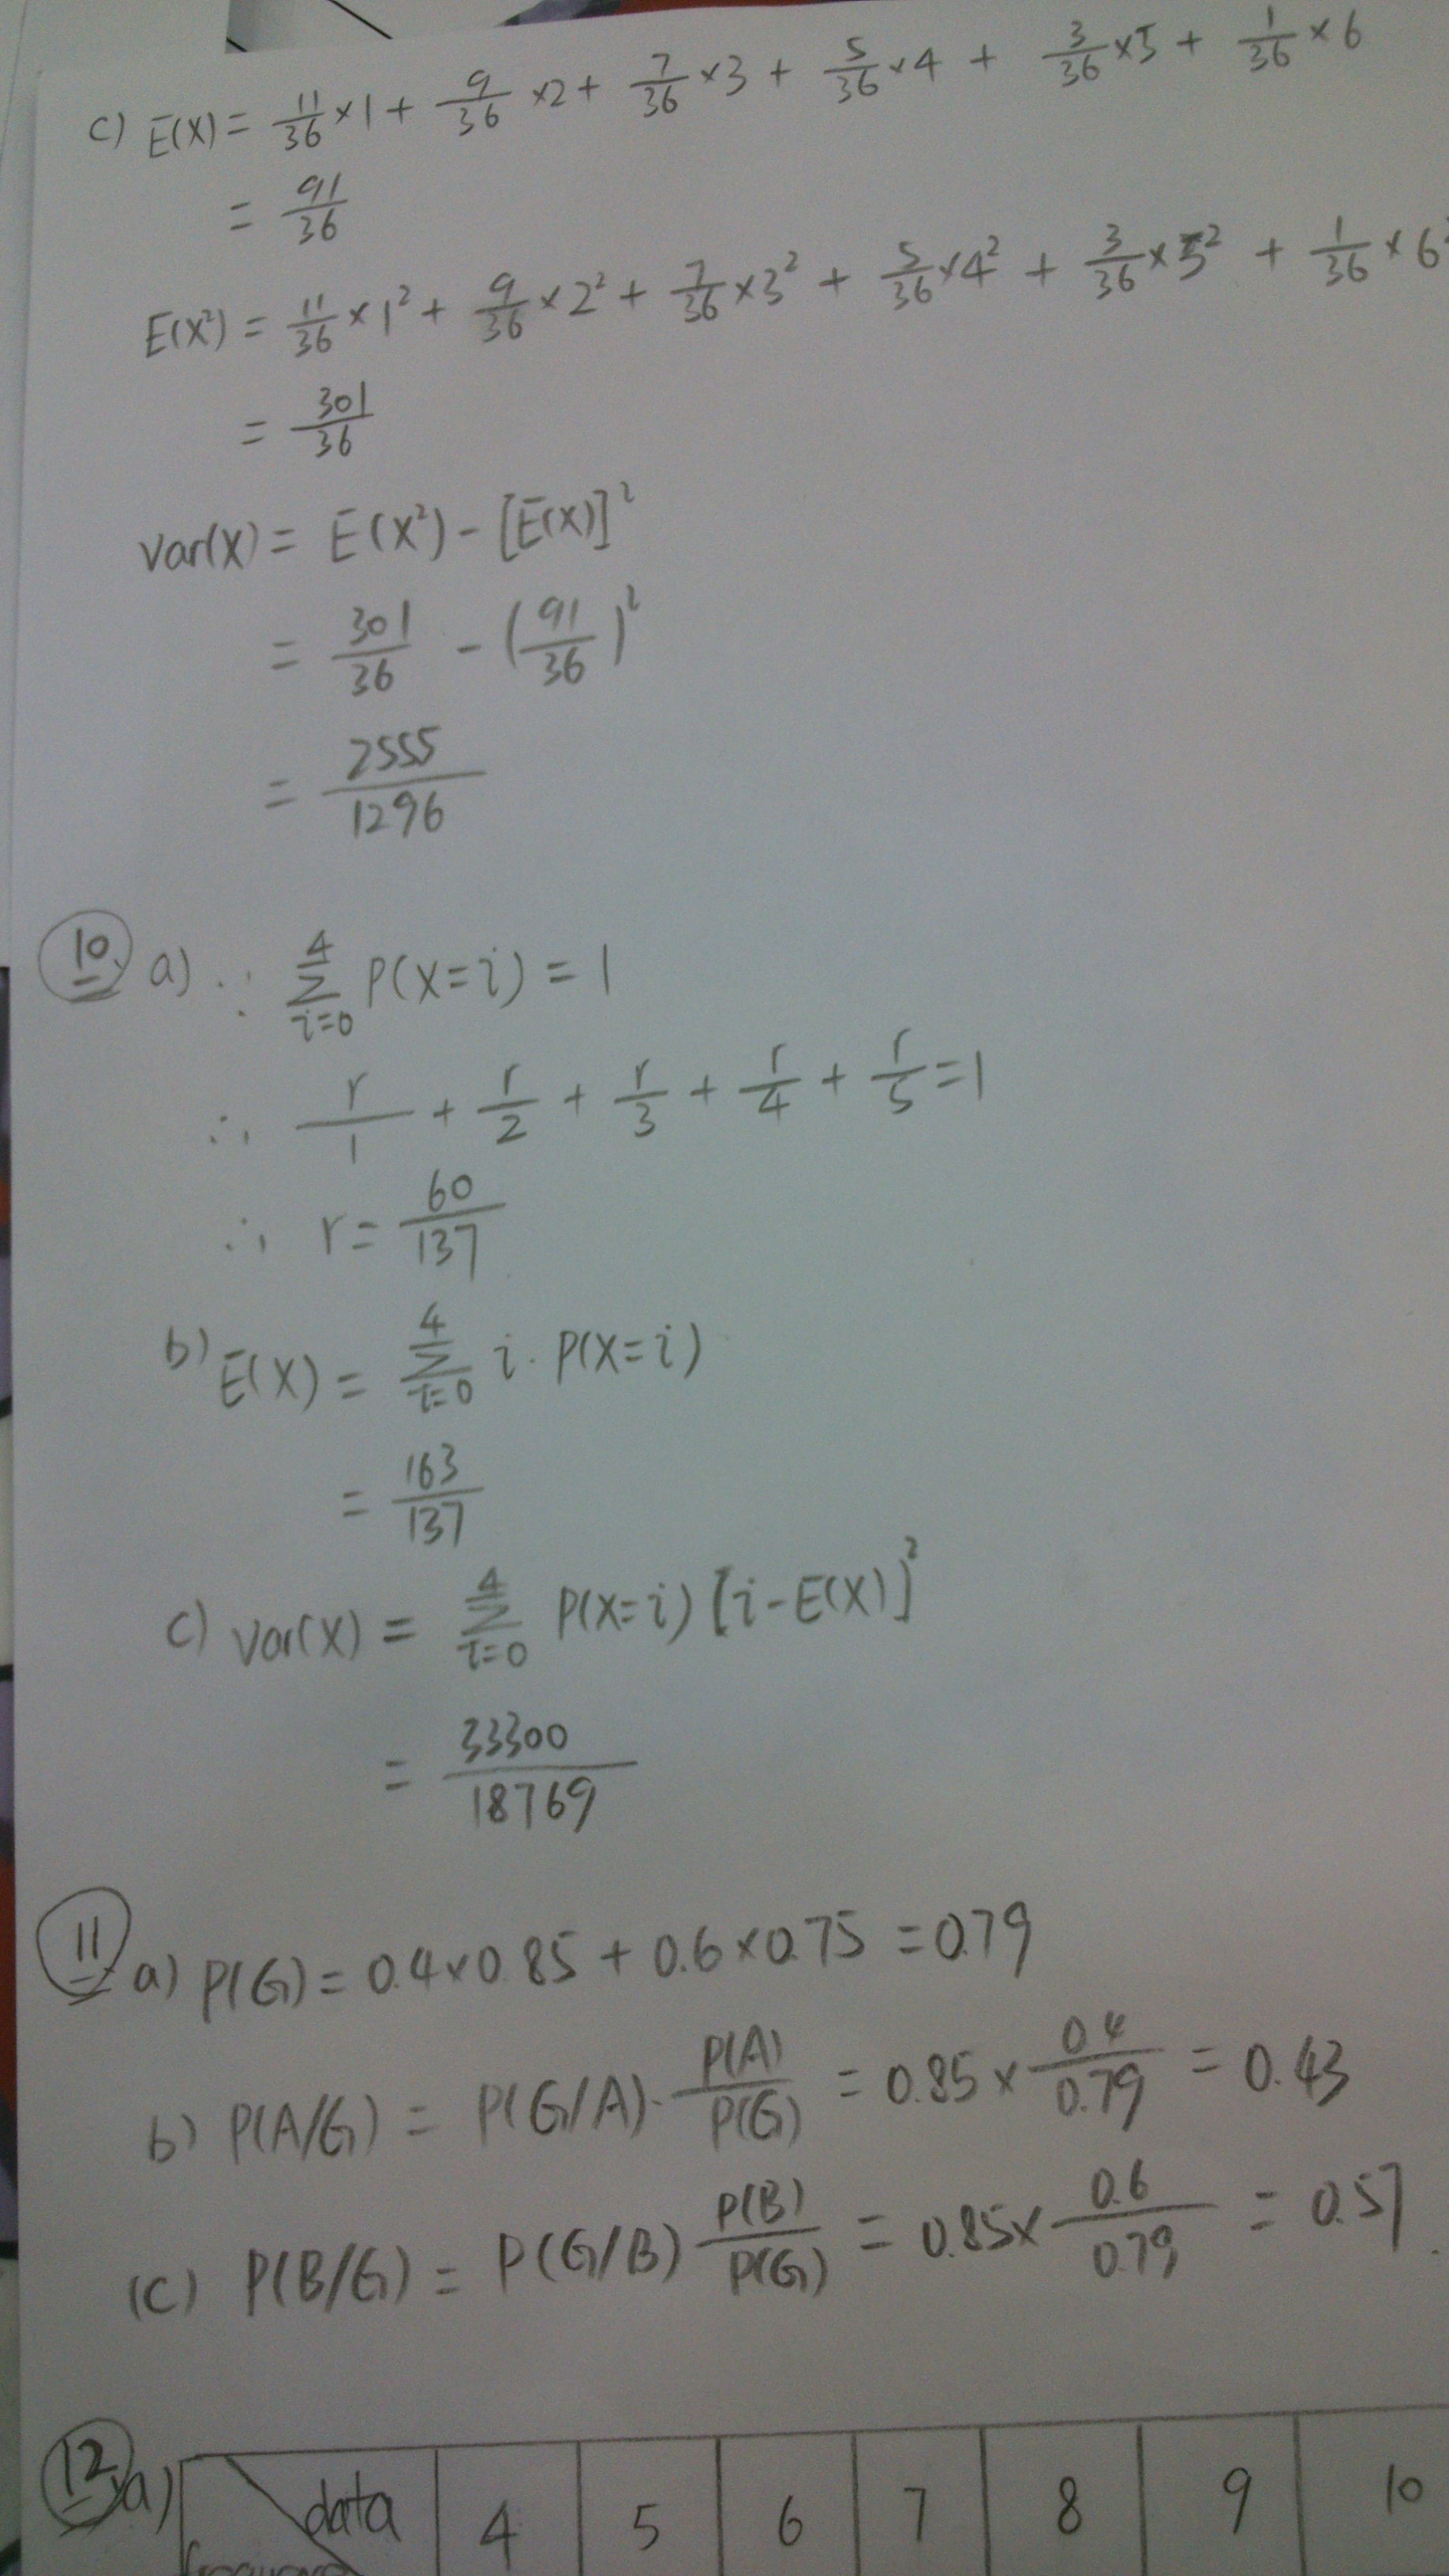 c) E(X) = 11/36 ×1 + 9/36 ×2 + 7/36 ×3 + 5/36 ×4 + 3/36 ×5 + 1/36 ×6
= 91/36
E(X²) = 11/36 ×1² + 9/36 ×2² + 7/36 ×3² + 5/36 ×4² + 3/36 ×5² + 1/36 ×6²
= 301/36
Var(X) = E(X²) - [E(X)]²
= 301/36 - (91/36)²
= 2555/1296
10 a) ∵ Σ_{i=0}^{4} P(X=i) = 1
∴ r/1 + r/2 + r/3 + r/4 + r/5 = 1
∴ r = 60/137
b) E(X) = Σ_{i=0}^{4} i · P(X=i)
= 163/137
c) Var(X) = Σ_{i=0}^{4} P(X=i) [i-E(X)]²
= 33300/18769
11 a) P(G) = 0.4×0.85 + 0.6×0.75 = 0.79
b) P(A/G) = P(G/A) · P(A)/P(G) = 0.85 × 0.4/0.79 = 0.43
(c) P(B/G) = P(G/B) P(B)/P(G) = 0.85 × 0.6/0.79 = 0.57.
12 a) data 4 5 6 7 8 9 10